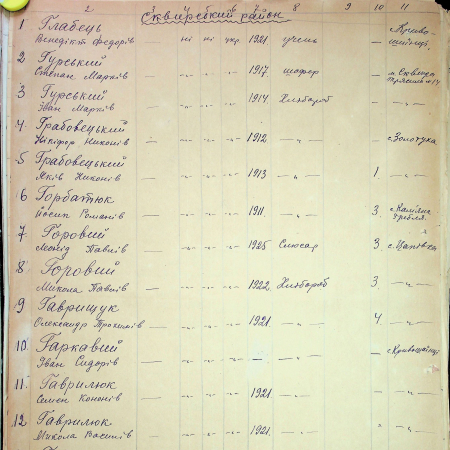 2 7 8 9 10 11
Сквирський район
1 Глабець
Венедікт Федорів ні ні укр 1921 учень Криво-
шиїнці
2 Гурський
Степан Марків 1917. шофер м. Сквира
3 Гурський
Іван Марків 1914. Хлібороб
4 Грабовецький
Нікіфор Никонів 1912 с. Золотуха
5 Грабовецький
Яків Никонів 1913 1.
6 Горбатюк
Йосип Романів 1911. 3. с. Кам'яна
гребля.
7 Горовий
Леонід Павлів 1925 Слюсар 3 с. Цапівка
8 Горовий
Микола Павлів 1922 Хлібороб 3
9 Гаврищук
Олександр Трохимів 1921. 4.
10. Гаркавий
Іван Сидорів с. Кривошиїнці
11. Гаврилюк
Семен Кононів 1921.
12 Гаврилюк
Микола Василів 1921.